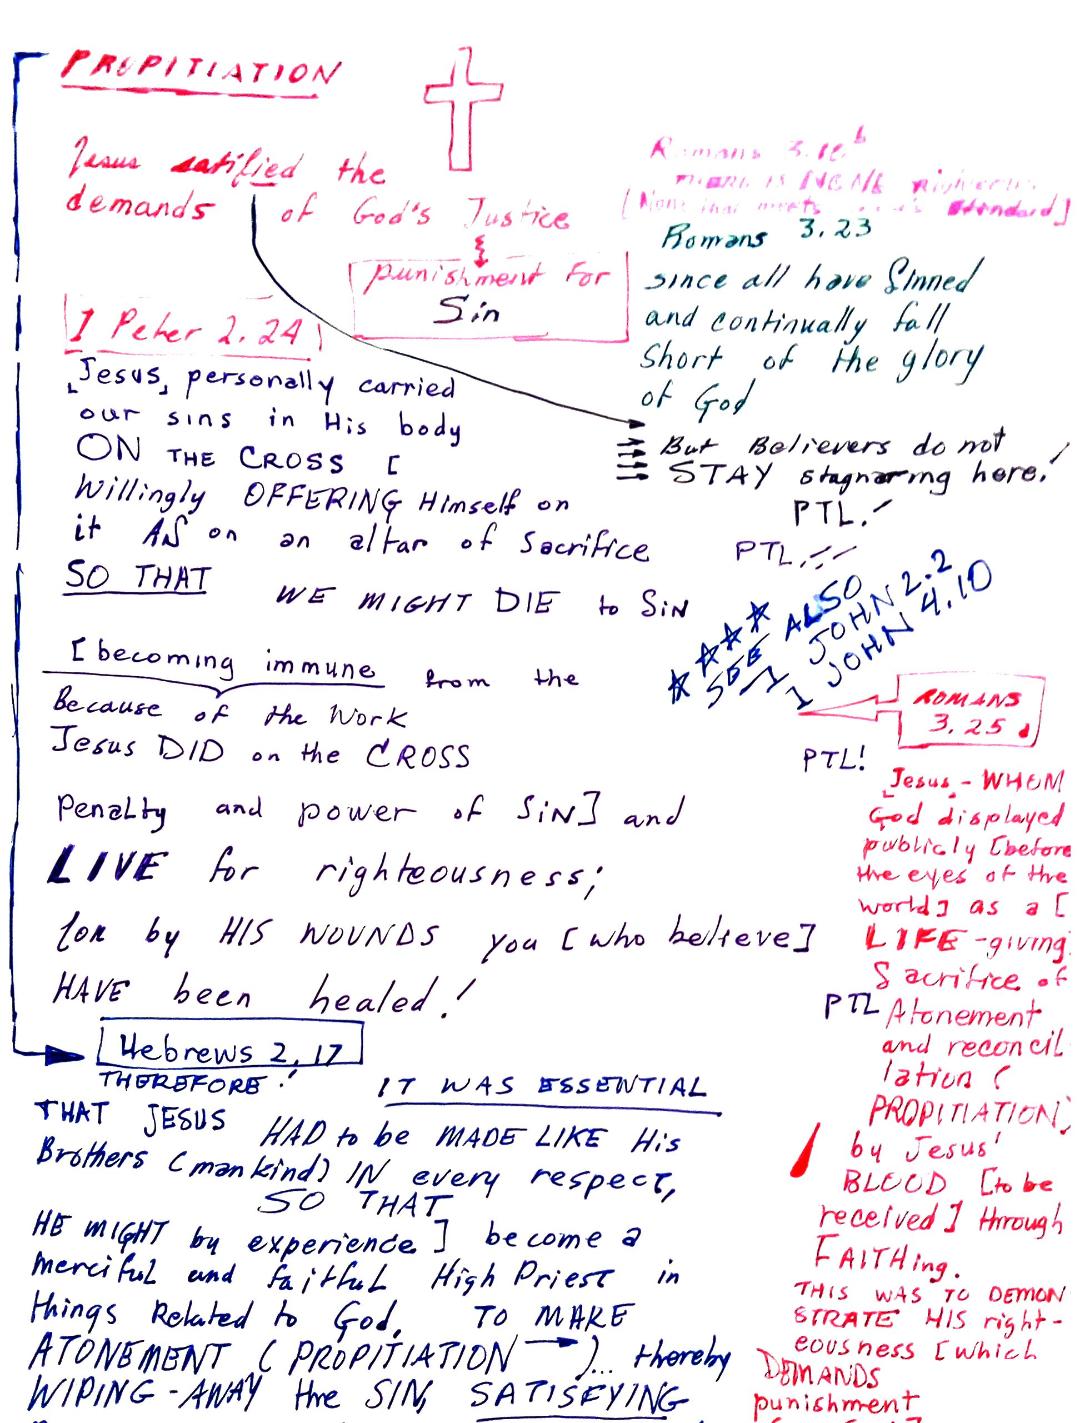 PROPITIATION
Jesus satified the
demands of God's Justice
punishment for
Sin
Romans 3.10b
There is NONE righteous
[None that meets God's standard]
Romans 3.23
since all have Sinned
and continually fall
Short of the glory
of God
But Believers do not
STAY stagnating here!
PTL!
PTL!!
I Peter 2.24
[Jesus] personally carried
our sins in His body
ON THE CROSS [
Willingly OFFERING Himself on
it AS on an altar of Sacrifice
SO THAT WE MIGHT DIE to SiN
[becoming immune from the
Because of the Work
Jesus DID on the CROSS
Penalty and power of SiN] and
LIVE for righteousness;
for by HIS WOUNDS you [who believe]
HAVE been healed!
SEE ALSO
1 JOHN 2.2
1 JOHN 4.10
ROMANS
3.25
PTL!
[Jesus] - WHOM
God displayed
publicly [before
the eyes of the
world] as a [
LIFE-giving
Sacrifice of
PTL
Atonement
and reconcil
iation (
PROPITIATION]
by Jesus'
BLOOD [to be
received] through
FAITHing.
THIS WAS TO DEMON
STRATE HIS right-
eousness [which
DEMANDS
punishment
Hebrews 2,17
THEREFORE! IT WAS ESSENTIAL
THAT JESUS HAD to be MADE LIKE His
Brothers (mankind) IN every respect,
SO THAT
HE MIGHT by experience] become a
merciful and faitful High Priest in
things Related to God, TO MAKE
ATONEMENT (PROPITIATION )... thereby
WIPING-AWAY the SIN, SATISFYING